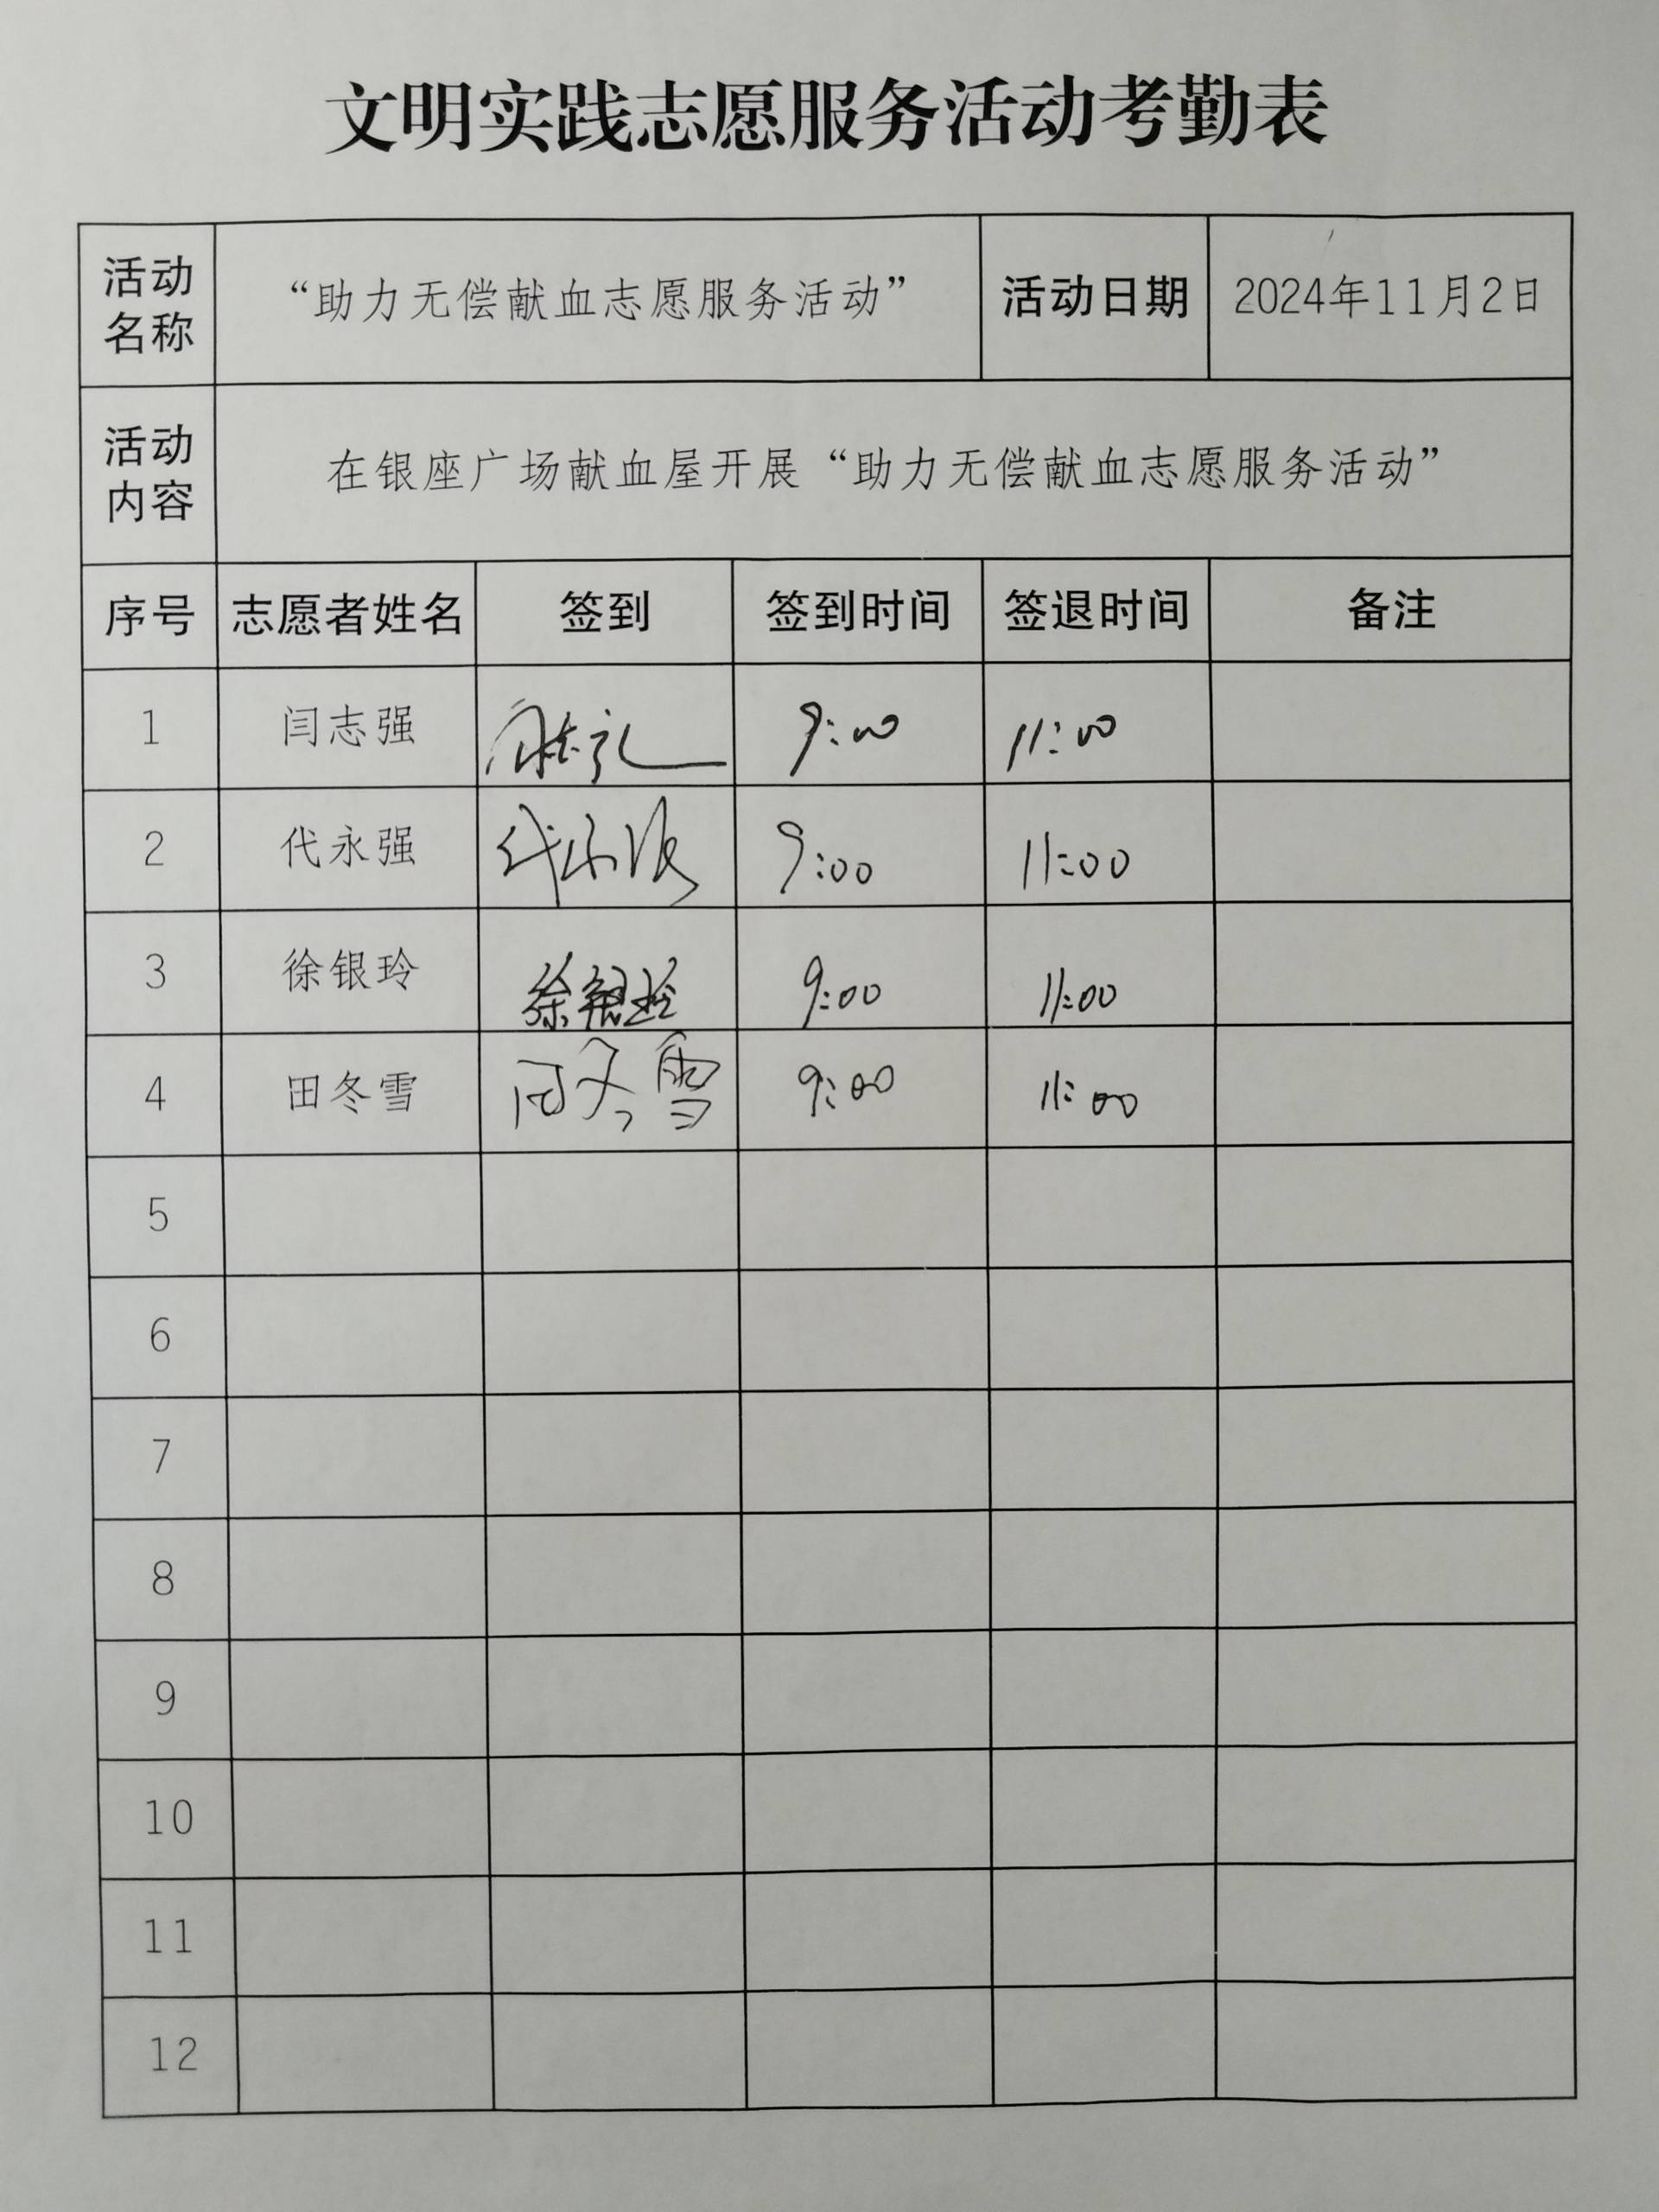 文明实践志愿服务活动考勤表
活动名称 “助力无偿献血志愿服务活动” 活动日期 2024年11月2日
活动内容 在银座广场献血屋开展“助力无偿献血志愿服务活动”
序号 志愿者姓名 签到 签到时间 签退时间 备注
1 闫志强 闫志强 9:00 11:00
2 代永强 代永强 9:00 11:00
3 徐银玲 徐银玲 9:00 11:00
4 田冬雪 田冬雪 9:00 11:00
5
6
7
8
9
10
11
12